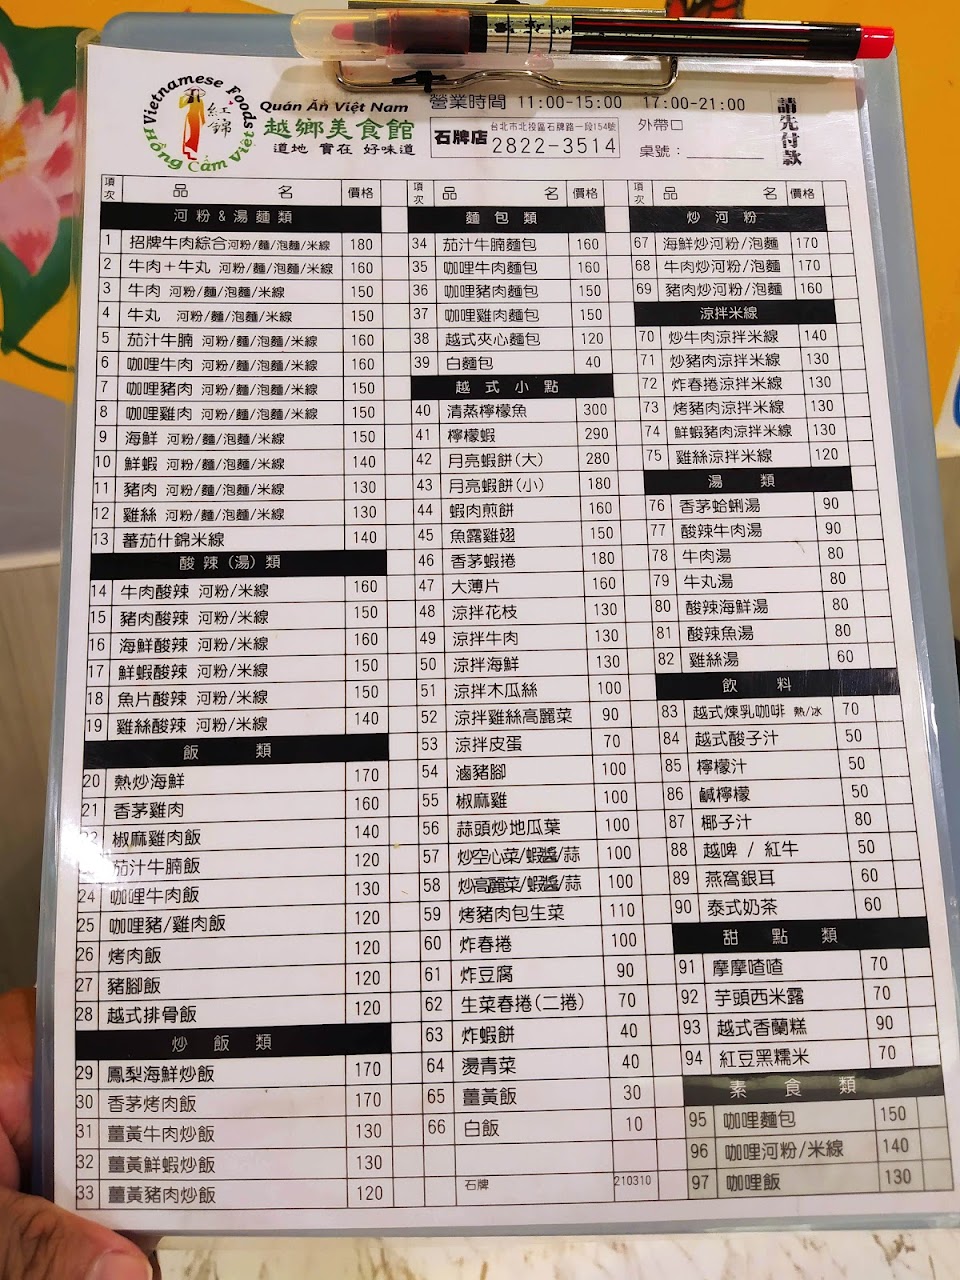 Vietnamese Foods
紅錦
Hồng Cẩm Việt
Quán Ăn Việt Nam
越鄉美食館
道地 實在 好味道
營業時間 11:00-15:00 17:00-21:00
石牌店
台北市北投區石牌路一段154號
2822-3514
外帶口
桌號：
請先付款
項次 品名 價格
河粉&湯麵類
1 招牌牛肉綜合河粉/麵/泡麵/米線 180
2 牛肉＋牛丸 河粉/麵/泡麵/米線 160
3 牛肉 河粉/麵/泡麵/米線 150
4 牛丸 河粉/麵/泡麵/米線 150
5 茄汁牛腩 河粉/麵/泡麵/米線 160
6 咖哩牛肉 河粉/麵/泡麵/米線 160
7 咖哩豬肉 河粉/麵/泡麵/米線 150
8 咖哩雞肉 河粉/麵/泡麵/米線 150
9 海鮮 河粉/麵/泡麵/米線 150
10 鮮蝦 河粉/麵/泡麵/米線 140
11 豬肉 河粉/麵/泡麵/米線 130
12 雞絲 河粉/麵/泡麵/米線 130
13 蕃茄什錦米線 140
酸辣(湯)類
14 牛肉酸辣 河粉/米線 160
15 豬肉酸辣 河粉/米線 150
16 海鮮酸辣 河粉/米線 160
17 鮮蝦酸辣 河粉/米線 150
18 魚片酸辣 河粉/米線 150
19 雞絲酸辣 河粉/米線 140
飯類
20 熱炒海鮮 170
21 香茅雞肉 160
22 椒麻雞肉飯 140
茄汁牛腩飯 120
24 咖哩牛肉飯 130
25 咖哩豬/雞肉飯 120
26 烤肉飯 120
27 豬腳飯 120
28 越式排骨飯 120
炒飯類
29 鳳梨海鮮炒飯 170
30 香茅烤肉飯 170
31 薑黃牛肉炒飯 130
32 薑黃鮮蝦炒飯 130
33 薑黃豬肉炒飯 120
項次 品名 價格
麵包類
34 茄汁牛腩麵包 160
35 咖哩牛肉麵包 160
36 咖哩豬肉麵包 150
37 咖哩雞肉麵包 150
38 越式夾心麵包 120
39 白麵包 40
越式小點
40 清蒸檸檬魚 300
41 檸檬蝦 290
42 月亮蝦餅(大) 280
43 月亮蝦餅(小) 180
44 蝦肉煎餅 160
45 魚露雞翅 150
46 香茅蝦捲 180
47 大薄片 160
48 涼拌花枝 130
49 涼拌牛肉 130
50 涼拌海鮮 130
51 涼拌木瓜絲 100
52 涼拌雞絲高麗菜 90
53 涼拌皮蛋 70
54 滷豬腳 100
55 椒麻雞 100
56 蒜頭炒地瓜葉 100
57 炒空心菜/蝦醬/蒜 100
58 炒高麗菜/蝦醬/蒜 100
59 烤豬肉包生菜 110
60 炸春捲 100
61 炸豆腐 90
62 生菜春捲(二捲) 70
63 炸蝦餅 40
64 燙青菜 40
65 薑黃飯 30
66 白飯 10
石牌 210310
項次 品名 價格
炒河粉
67 海鮮炒河粉/泡麵 170
68 牛肉炒河粉/泡麵 170
69 豬肉炒河粉/泡麵 160
涼拌米線
70 炒牛肉涼拌米線 140
71 炒豬肉涼拌米線 130
72 炸春捲涼拌米線 130
73 烤豬肉涼拌米線 130
74 鮮蝦豬肉涼拌米線 130
75 雞絲涼拌米線 120
湯類
76 香茅蛤蜊湯 90
77 酸辣牛肉湯 90
78 牛肉湯 80
79 牛丸湯 80
80 酸辣海鮮湯 80
81 酸辣魚湯 80
82 雞絲湯 60
飲料
83 越式煉乳咖啡 熱/冰 70
84 越式酸子汁 50
85 檸檬汁 50
86 鹹檸檬 50
87 椰子汁 80
88 越啤 / 紅牛 50
89 燕窩銀耳 60
90 泰式奶茶 60
甜點類
91 摩摩喳喳 70
92 芋頭西米露 70
93 越式香蘭糕 90
94 紅豆黑糯米 70
素食類
95 咖哩麵包 150
96 咖哩河粉/米線 140
97 咖哩飯 130